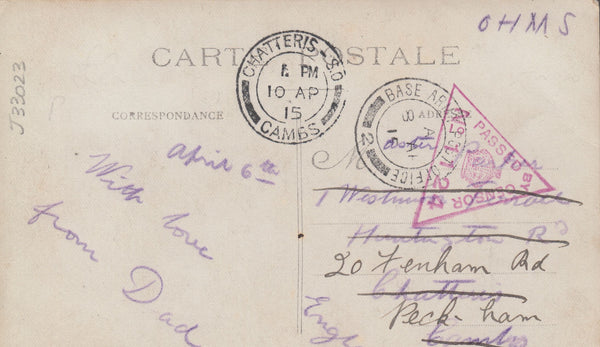 OHMS
CARTE POSTALE
J33023
CHATTERIS - S.O
1 PM
10 AP
15
CAMBS
BASE ARMY POST OFFICE
2
PASSED BY
CENSOR
CORRESPONDANCE
ADRESSE
April 6th
With love
from Dad
Master
1 Westmin Terrace
Huntington Rd
20 Fenham Rd
Chatteris
Peckham
Cambs